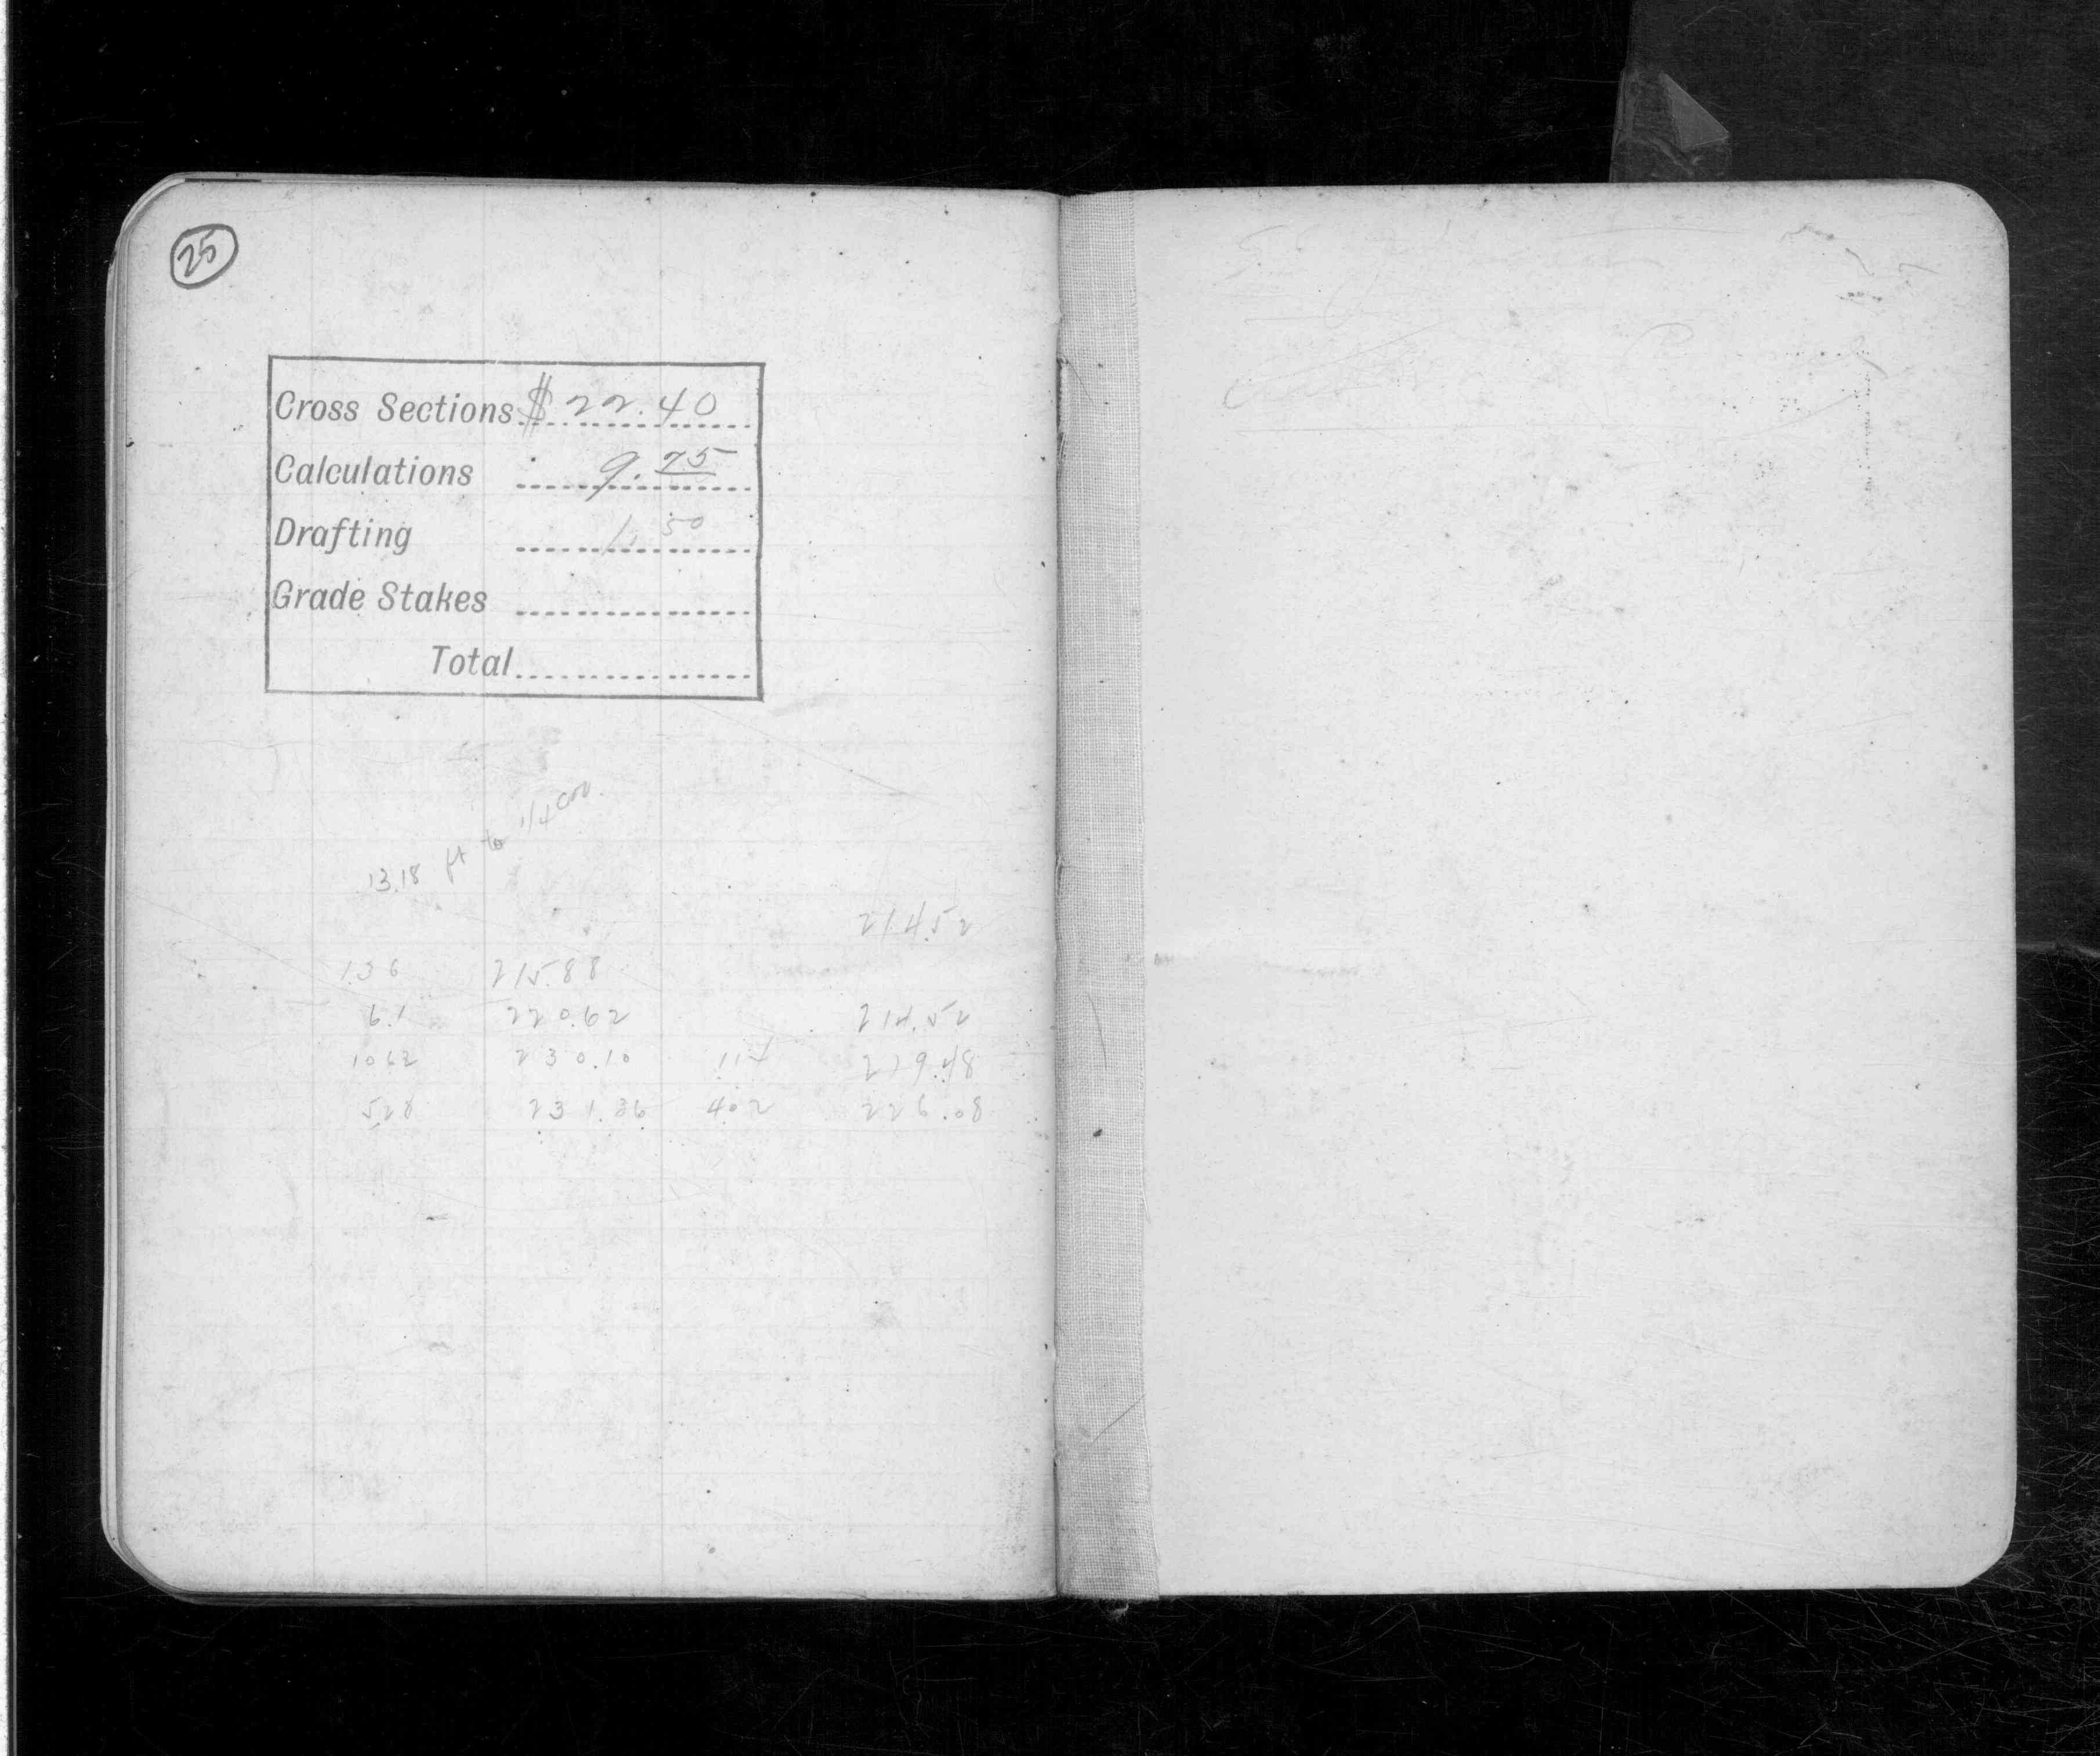 25
Cross Sections $ 22.40
Calculations 9.75
Drafting 1.50
Grade Stakes
Total
13.18 ft to 1/4 cor.
214.52
1.36 215.88
6.1 220.62 214.52
10.62 230.10 1.14 219.48
5.28 231.36 4.02 226.08